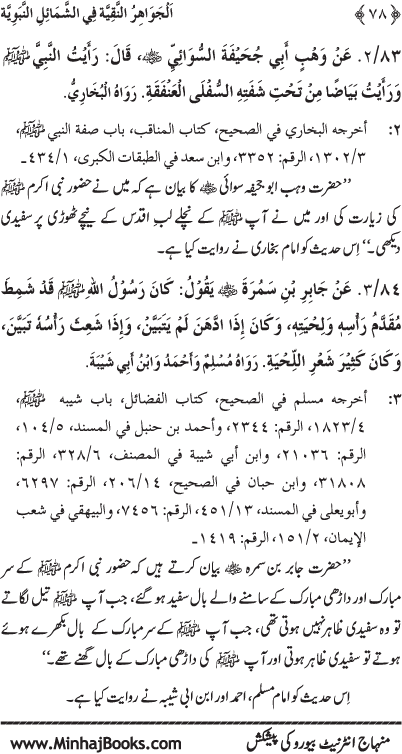 ﴿٧٨﴾ اَلْجَوَاهِرُ النَّقِيَّة فِي الشَّمَائِلِ النَّبَوِيَّة
٢/٨٣. عَنْ وَهْبٍ أَبِي جُحَيْفَةَ السُّوَائِيِّ ﷺ، قَالَ: رَأَيْتُ النَّبِيَّ ﷺ
وَرَأَيْتُ بَيَاضًا مِنْ تَحْتِ شَفَتِهِ السُّفْلَى الْعَنْفَقَةِ. رَوَاهُ الْبُخَارِيُّ.
٢: أخرجه البخاري في الصحيح، كتاب المناقب، باب صفة النبي ﷺ،
٣/١٣٠٢، الرقم: ٣٣٥٢، وابن سعد في الطبقات الكبرى، ١/٤٣٤۔
’’حضرت وہب ابو جحیفہ سوائی ؓ کا بیان ہے کہ میں نے حضور نبی اکرم ﷺ
کی زیارت کی اور میں نے آپ ﷺ کے نچلے لبِ اقدس کے نیچے ٹھوڑی پر سفیدی
دیکھی۔‘‘ اِس حدیث کو امام بخاری نے روایت کیا ہے۔
٣/٨٤. عَنْ جَابِرِ بْنِ سَمُرَةَ ؓ يَقُوْلُ: كَانَ رَسُوْلُ اللهِ ﷺ قَدْ شَمِطَ
مُقَدَّمُ رَأْسِهِ وَلِحْيَتِهِ، وَكَانَ إِذَا ادَّهَنَ لَمْ يَتَبَيَّنْ، وَإِذَا شَعِثَ رَأْسُهُ تَبَيَّنَ،
وَكَانَ كَثِيْرَ شَعْرِ اللِّحْيَةِ. رَوَاهُ مُسْلِمٌ وَأَحْمَدُ وَابْنُ أَبِي شَيْبَةَ.
٣: أخرجه مسلم في الصحيح، كتاب الفضائل، باب شيبه ﷺ،
٤/١٨٢٣، الرقم: ٢٣٤٤، وأحمد بن حنبل في المسند، ٥/١٠٤،
الرقم: ٢١٠٣٦، وابن أبي شيبة في المصنف، ٦/٣٢٨، الرقم:
٣١٨٠٨، وابن حبان في الصحيح، ١٤/٢٠٦، الرقم: ٦٢٩٧،
وأبويعلى في المسند، ١٣/٤٥١، الرقم: ٧٤٥٦، والبيهقي في شعب
الإيمان، ٢/١٥١، الرقم: ١٤١٩۔
’’حضرت جابر بن سمرہ ؓ بیان کرتے ہیں کہ حضور نبی اکرم ﷺ کے سر
مبارک اور داڑھی مبارک کے سامنے والے بال سفید ہو گئے، جب آپ ﷺ تیل لگاتے
تو وہ سفیدی ظاہر نہیں ہوتی تھی، جب آپ ﷺ کے سر مبارک کے بال بکھرے ہوئے
ہوتے تو سفیدی ظاہر ہوتی اور آپ ﷺ کی داڑھی مبارک کے بال گھنے تھے۔‘‘
اِس حدیث کو امام مسلم، احمد اور ابن ابی شیبہ نے روایت کیا ہے۔
منہاج انٹرنیٹ بیورو کی پیشکش www.MinhajBooks.com